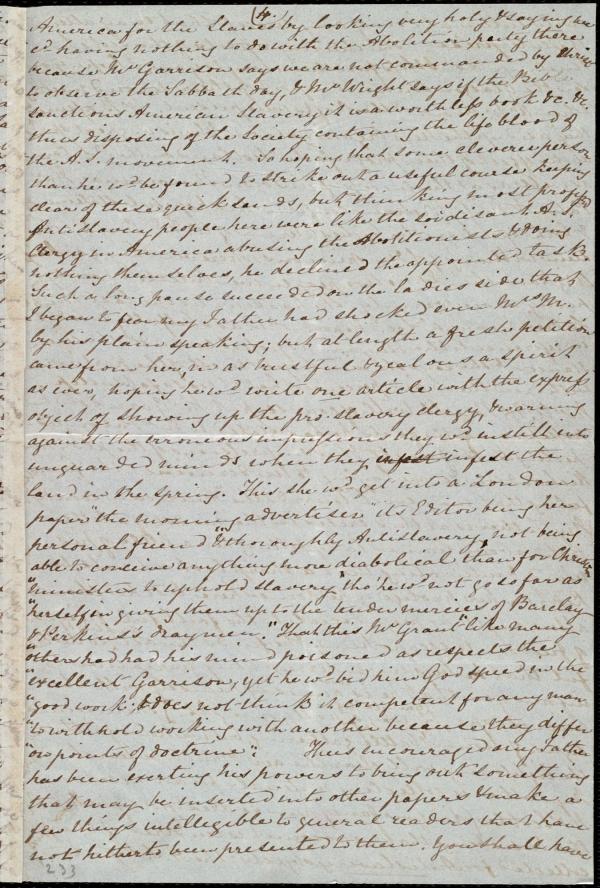 (4.
America for the Slaves by looking very holy & saying we
cd having nothing to do with the Abolition party there
because Mr Garrison says we are not commanded by Christ
to observe the Sabbath day, & Mr Wright says if the Bible
sanctions American Slavery it is a worthless book &c. &c.
thus disposing of the Society containing the life blood of
the A.S. movement. So hoping that some cleverer person
than he wd be found to strike out a useful course keeping
clear of these quicksands, but thinking most profess'd
Antislavery people here were like the soidisant A.S.
Clergy in America abusing the Abolitionists & doing
nothing themselves, he declined the appointed task.
Such a long pause succeeded on the ladies side that
I began to fear my Father had shocked even Mrs M.
by his plain speaking; but at length a fresh petition
came from her, in as trustful & zealous a spirit
as ever, hoping he wd write one article with the express
object of showing up the pro-slavery clergy, & warning
against the erroneous impressions they wd instill into
unguarded minds when they infest infest the
land in the spring. This she wd get into a London
paper "the morning advertiser" its Editor being her
personal friend "& thoroughly Antislavery, not being
able to conceive anything more diabolical than for Christn
"ministers to uphold slavery" tho' he wd not go so far as
"herself in giving them up to the tender mercies of Barclay
& Perkins's draymen." That this Mr Grant "like many
"others had had his mind poisoned as respects the
"excellent Garrison, yet he wd bid him God speed in the
"good work; & does not think it competent for any man
"to withhold working with another because they differ
"on points of doctrine". Thus encouraged my Father
has been exerting his powers to bring out something
that may be inserted into other papers & make a
few things intellegible to general readers that have
not hitherto been presented to them. You shall have
233